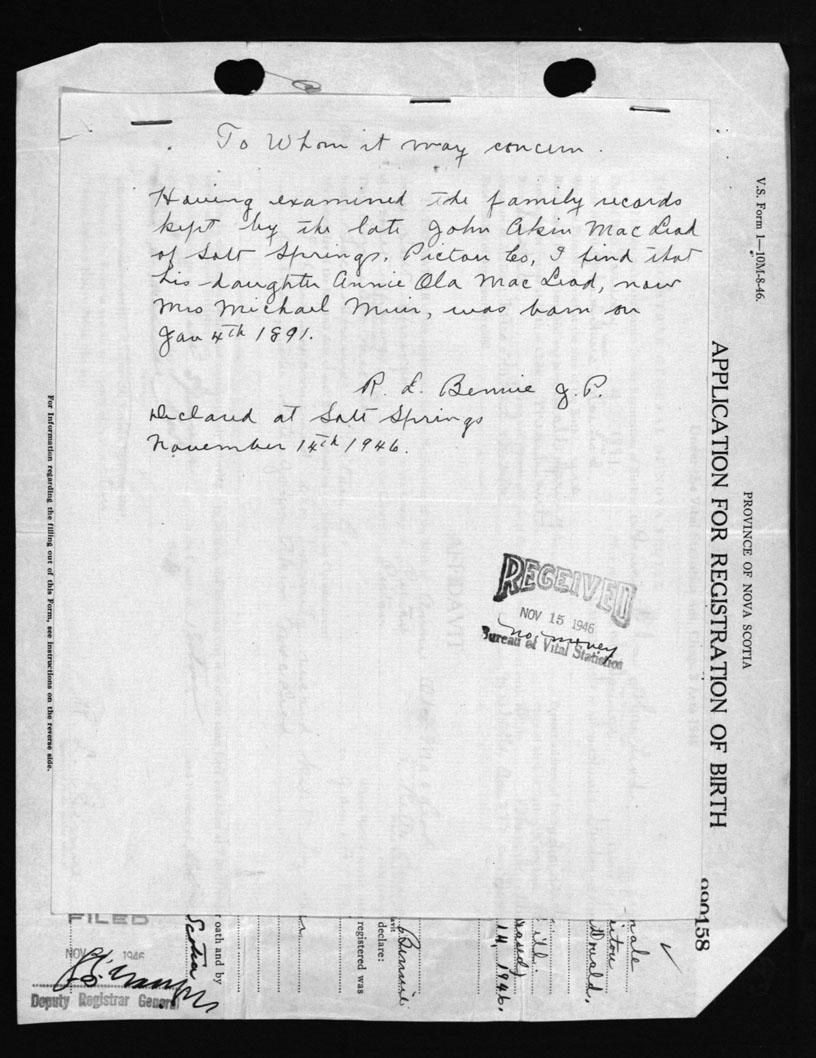 To Whom it may concern.
Having examined the family records
kept by the late John Akin MacLeod
of Salt Springs, Pictou Co, I find that
his daughter Annie Ola MacLeod, now
Mrs Michael Muir, was born on
Jan 4th 1891.
R. L. Bennie J. P.
Declared at Salt Springs
November 14th 1946.
RECEIVED
NOV 15 1946
no money
Bureau of Vital Statistics
V.S. Form 1—10M-8-46.
PROVINCE OF NOVA SCOTIA
APPLICATION FOR REGISTRATION OF BIRTH
For Information regarding the filling out of this Form, see Instructions on the reverse side.
158
male
Donald,
14, 1946.
Bennie
declare:
registered was
r oath and by
Scotia
FILED
NOV 1946
Deputy Registrar General